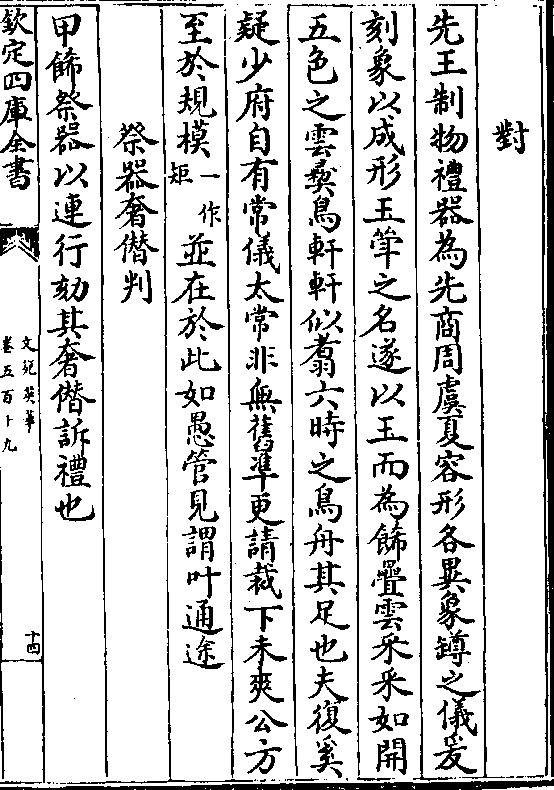 對
先王制物禮器為先商周虞夏容形各異象罇之儀爰
刻象以成形玉斝之名遂以玉而為飾罍雲采采如開
五色之雲彜鳥軒軒似翥六時之鳥舟其足也夫復奚
疑少府自有常儀太常非無舊準更請裁下未爽公方
至於規模一作矩並在於此如愚管見謂叶通途
祭器奢僭判
甲飾祭器以連行劾其奢僭訴禮也
欽定四庫全書
文苑英華
卷五百十九
十四